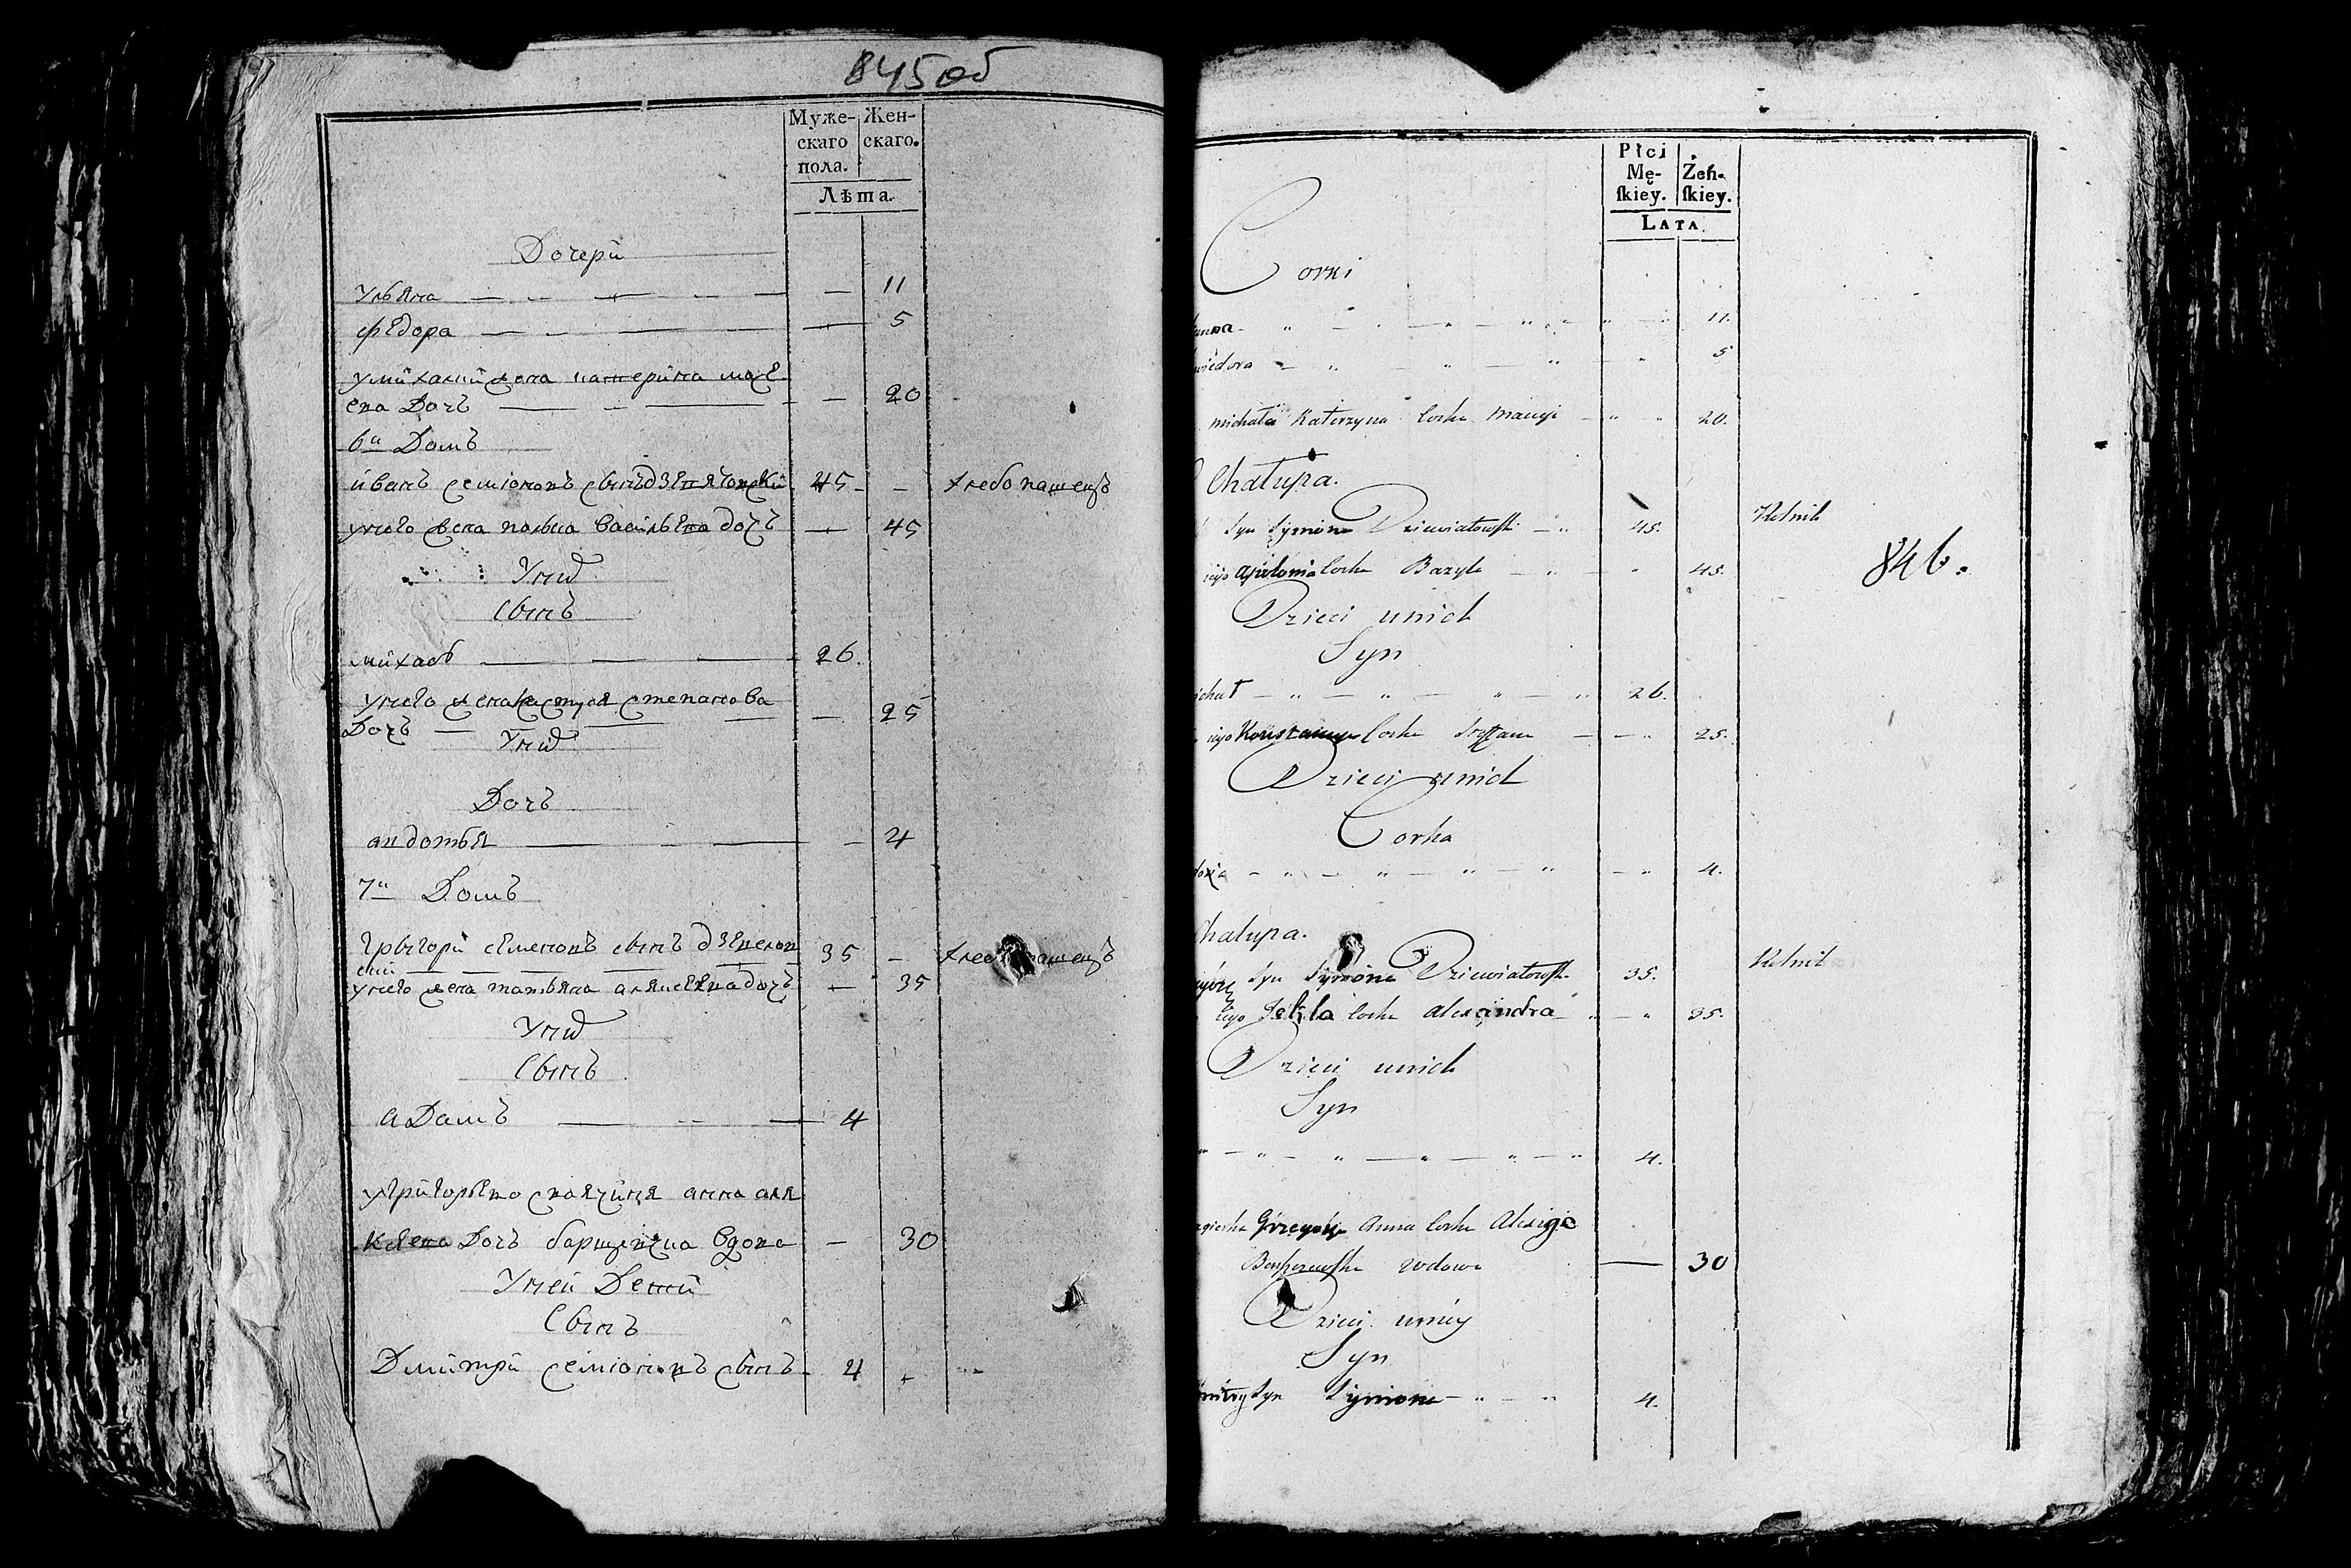 845 об
Муже- Жен-
скаго скаго.
пола.
Лѣта.
Дочери
Ульяна — — 11
Федора — — 5
у михали жена катерина мацѣ
ева Дочъ — — 20
6й Домъ
иванъ семіоновъ сынъ дзевяτовски 45 — хлебопашецъ
унего жена полонея васильева дочъ — 45
Унихъ
Сынъ
михалъ — 26.
унего жена кастуся степанова
Дочъ — 25
Унихъ
Дочъ
авдотья — — 4
7й Домъ
Грыгори семеновъ сынъ дзевелов 35 — хлебопашецъ
ский
унего жена татьяна аляксеева дочъ — 35
Унихъ
Сынъ
аДамъ — 4
угригорьево своячиня анна аля
ксеева Дочъ вдова — 30
Уней Детей
Сынъ
Дмитрй семіоновъ сынъ 4
Płci
Mę- Żeń-
ſkiey. ſkiey.
LATA.
Corki
11.
5
michała Katerzyna Corka Macieja 20.
Chałupa.
Syn Symona Dziewiatowski 45. Rolnik
846.
iego Apolonia Corka Bazyla 45.
Dzieci unich
Syn
ichał 26.
iego Konstancya Corka Steffana 25.
Dzieci unich
Corka
4.
hałupa.
Syn Symona Dziewiatowski 35. Rolnik
iego Tekla Corka Alexandra 35.
Dzieci unich
Syn
4.
Grzegorza Anna Corka Alexieja
wdowa — 30
Dzieci uniey
Syn
mitry Syn Symona 4.